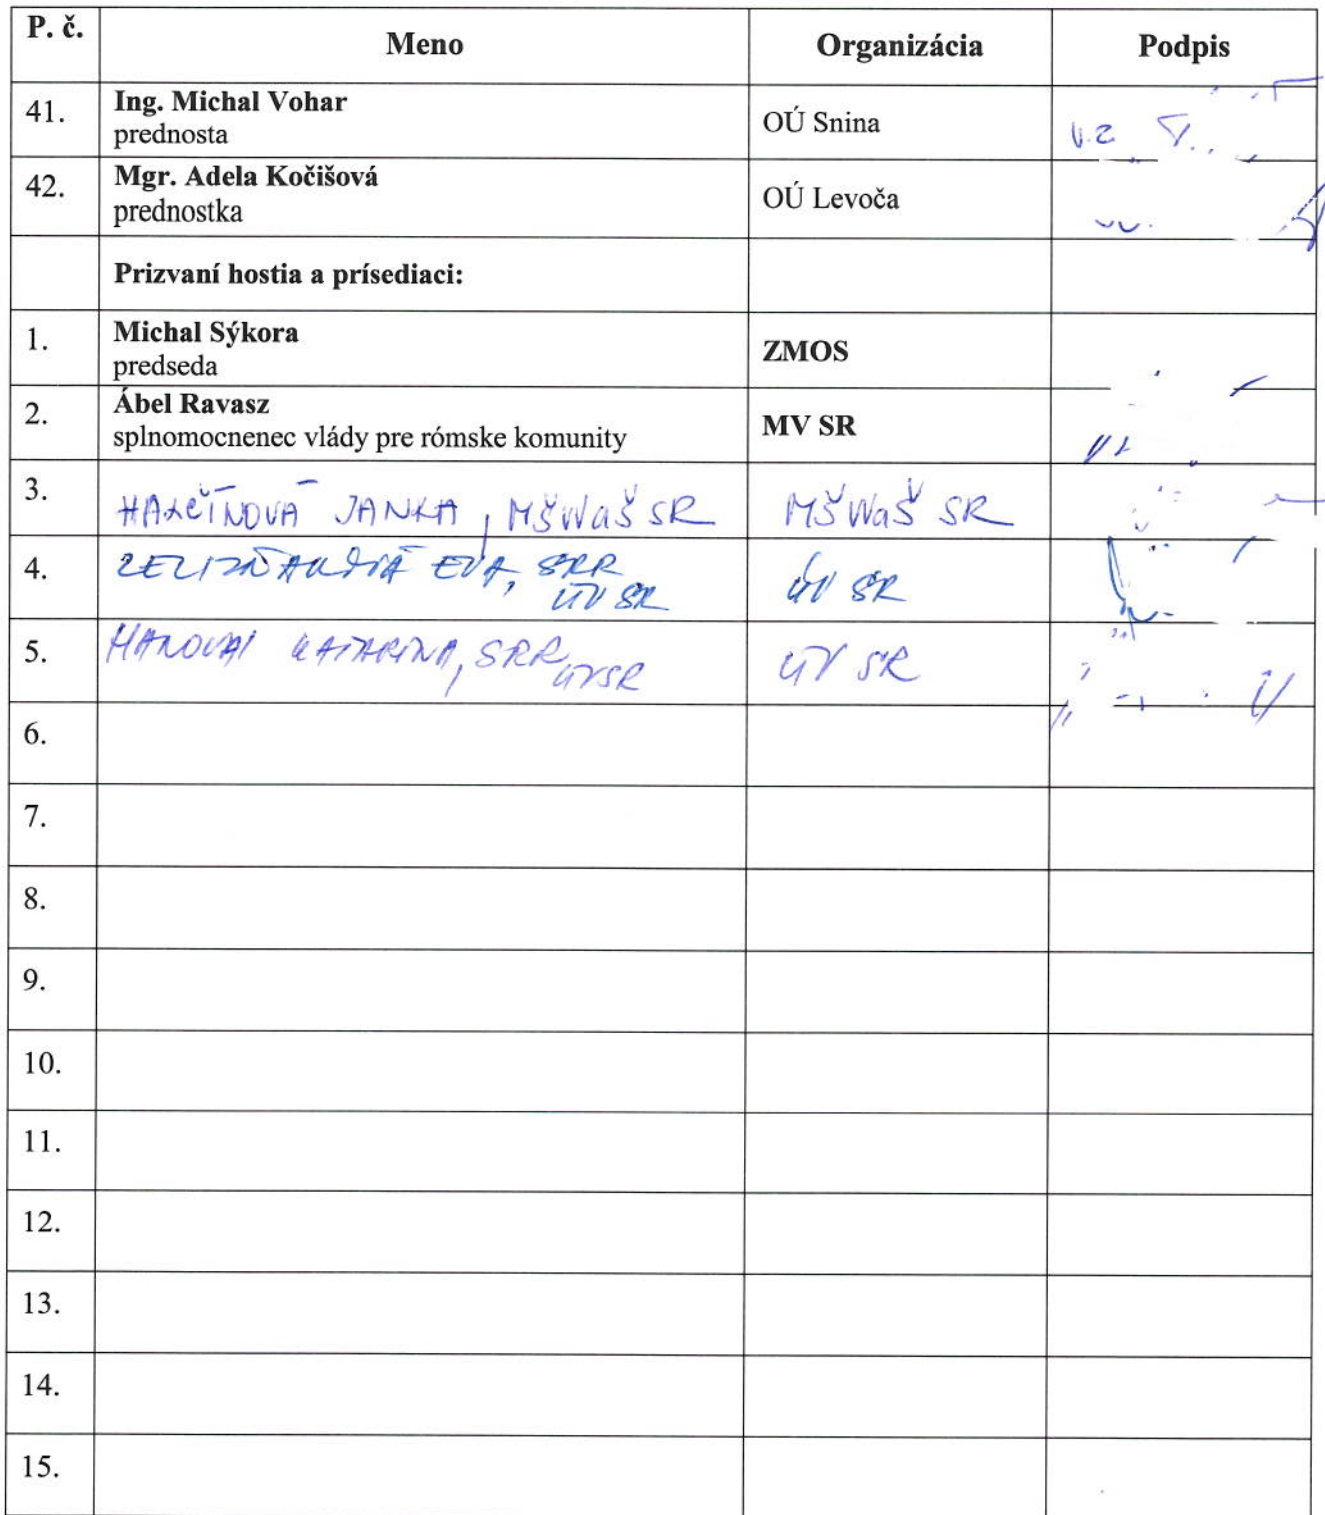 P. č. Meno Organizácia Podpis
41. Ing. Michal Vohar
prednosta OÚ Snina v.z.
42. Mgr. Adela Kočišová
prednostka OÚ Levoča
Prizvaní hostia a prísediaci:
1. Michal Sýkora
predseda ZMOS
2. Ábel Ravasz
splnomocnenec vlády pre rómske komunity MV SR
3. JANKA, MŠVVaŠ SR MŠVVaŠ SR
4. EVA, SRR
ÚV SR ÚV SR
5. KATARINA, SRR
ÚV SR ÚV SR
6.
7.
8.
9.
10.
11.
12.
13.
14.
15.